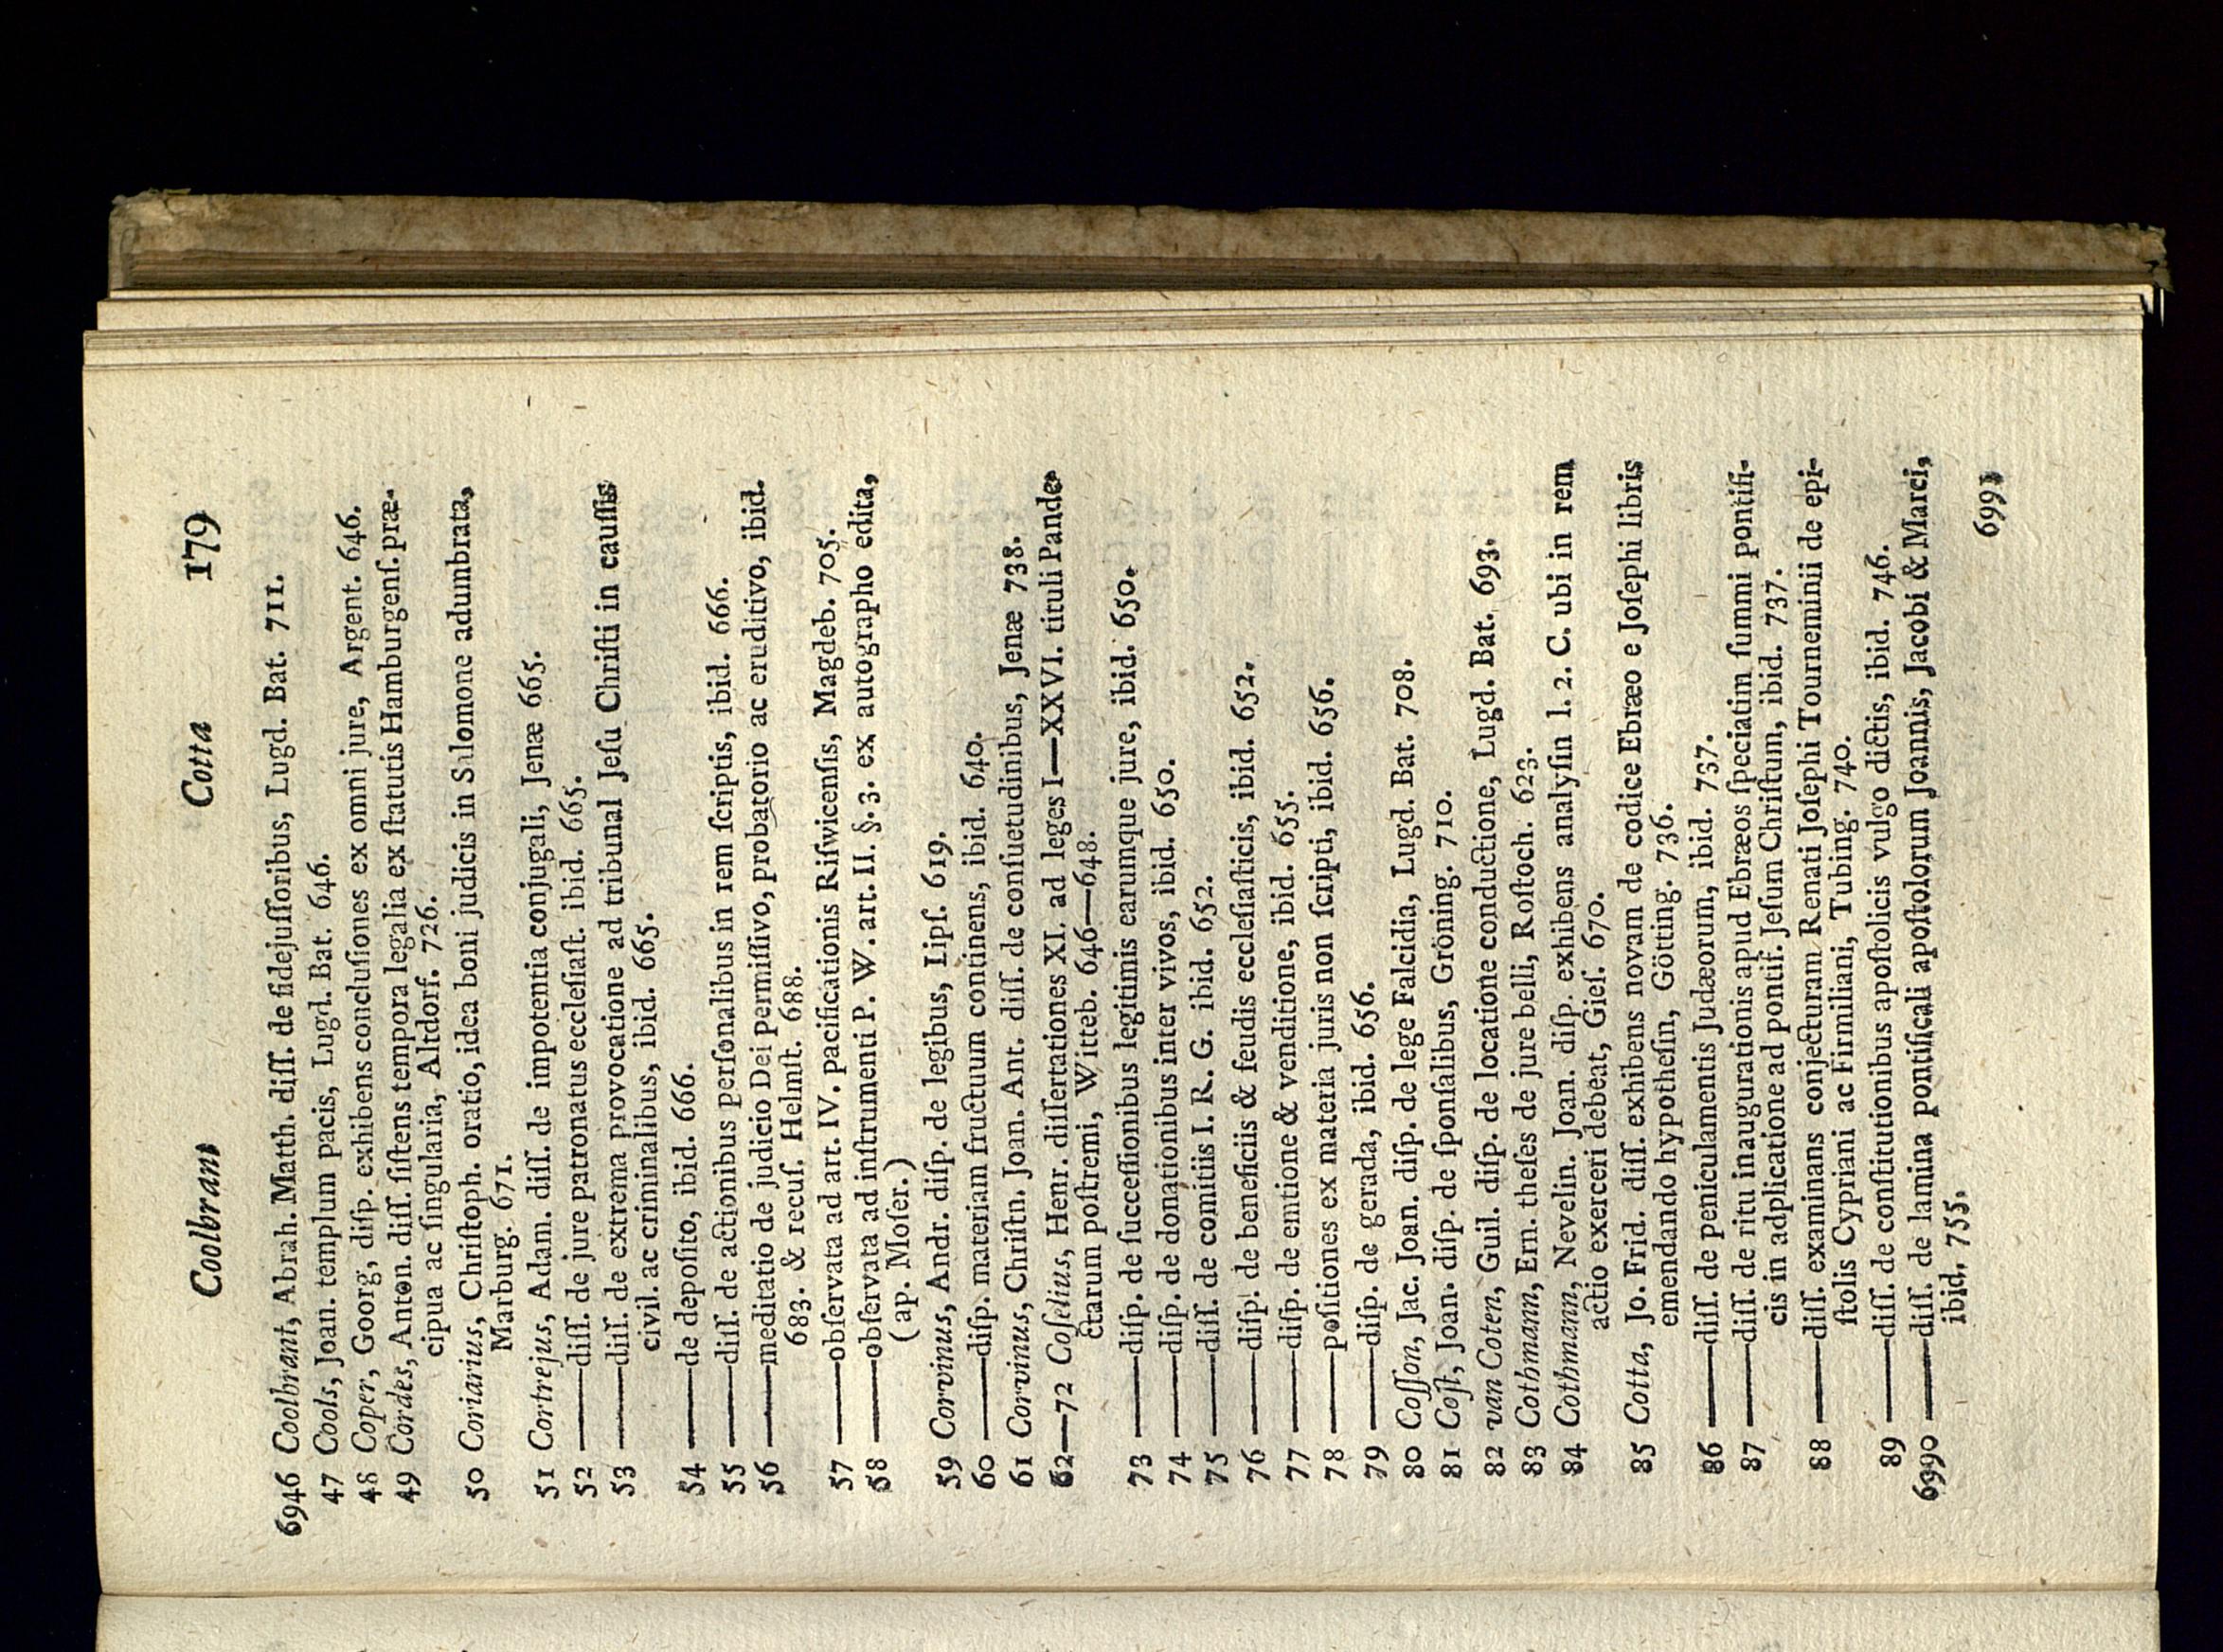 Coolbrant Cotta 179
6946 Coolbrant, Abrah. Matth. diſſ. de fidejuſſoribus, Lugd. Bat. 711.
47 Cools, Joan. templum pacis, Lugd. Bat. 646.
48 Coper, Goorg, diſp. exhibens concluſiones ex omni jure, Argent. 646.
49 Cordes, Anton. diſſ. ſiſtens tempora legalia ex ſtatutis Hamburgenſ. præ-
cipua ac ſingularia, Altdorf. 726.
50 Coriarius, Chriſtoph. oratio, idea boni judicis in Salomone adumbrata,
Marburg. 671.
51 Cortrejus, Adam. diſſ. de impotentia conjugali, Jenæ 665.
52 ——diſſ. de jure patronatus eccleſiaſt. ibid. 665.
53 ——diſſ. de extrema provocatione ad tribunal Jeſu Chriſti in cauſſis
civil. ac criminalibus, ibid. 665.
54 ——de depoſito, ibid. 666.
55 ——diſſ. de actionibus perſonalibus in rem ſcriptis, ibid. 666.
56 ——meditatio de judicio Dei permiſſivo, probatorio ac eruditivo, ibid.
683. & recuſ. Helmſt. 688.
57 ——obſervata ad art. IV. pacificationis Riſvicenſis, Magdeb. 705.
58 ——obſervata ad inſtrumenti P. W. art. II. §. 3. ex autographo edita,
(ap. Moſer.)
59 Corvinus, Andr. diſp. de legibus, Lipſ. 619.
60 ——diſp. materiam fructuum continens, ibid. 640.
61 Corvinus, Chriſtn. Joan. Ant. diſſ. de conſuetudinibus, Jenæ 738.
62—72 Coſelius, Henr. diſſertationes XI. ad leges I—XXVI. tituli Pande-
ctarum poſtremi, Witteb. 646—648.
73 ——diſp. de ſucceſſionibus legitimis earumque jure, ibid. 650.
74 ——diſp. de donationibus inter vivos, ibid. 650.
75 ——diſſ. de comitiis I. R. G. ibid. 652.
76 ——diſp. de beneficiis & feudis eccleſiaſticis, ibid. 652.
77 ——diſp. de emtione & venditione, ibid. 655.
78 ——poſitiones ex materia juris non ſcripti, ibid. 656.
79 ——diſp. de gerada, ibid. 656.
80 Coſſon, Jac. Joan. diſp. de lege Falcidia, Lugd. Bat. 708.
81 Coſt, Joan. diſp. de ſponſalibus, Gröning. 710.
82 van Coten, Guil. diſp. de locatione conductione, Lugd. Bat. 693.
83 Cothmann, Ern. theſes de jure belli, Roſtoch. 623.
84 Cothmann, Nevelin. Joan. diſp. exhibens analyſin l. 2. C. ubi in rem
actio exerceri debeat, Gieſ. 670.
85 Cotta, Jo. Frid. diſſ. exhibens novam de codice Ebræo e Joſephi libris
emendando hypotheſin, Götting. 736.
86 ——diſſ. de peniculamentis Judæorum, ibid. 737.
87 ——diſſ. de ritu inaugurationis apud Ebræos ſpeciatim ſummi pontifi-
cis in adplicatione ad pontif. Jeſum Chriſtum, ibid. 737.
88 ——diſſ. examinans conjecturam Renati Joſephi Tourneminii de epi-
ſtolis Cypriani ac Firmiliani, Tubing. 740.
89 ——diſſ. de conſtitutionibus apoſtolicis vulgo dictis, ibid. 746.
6990 ——diſſ. de lamina pontificali apoſtolorum Joannis, Jacobi & Marci,
ibid. 755.
6991